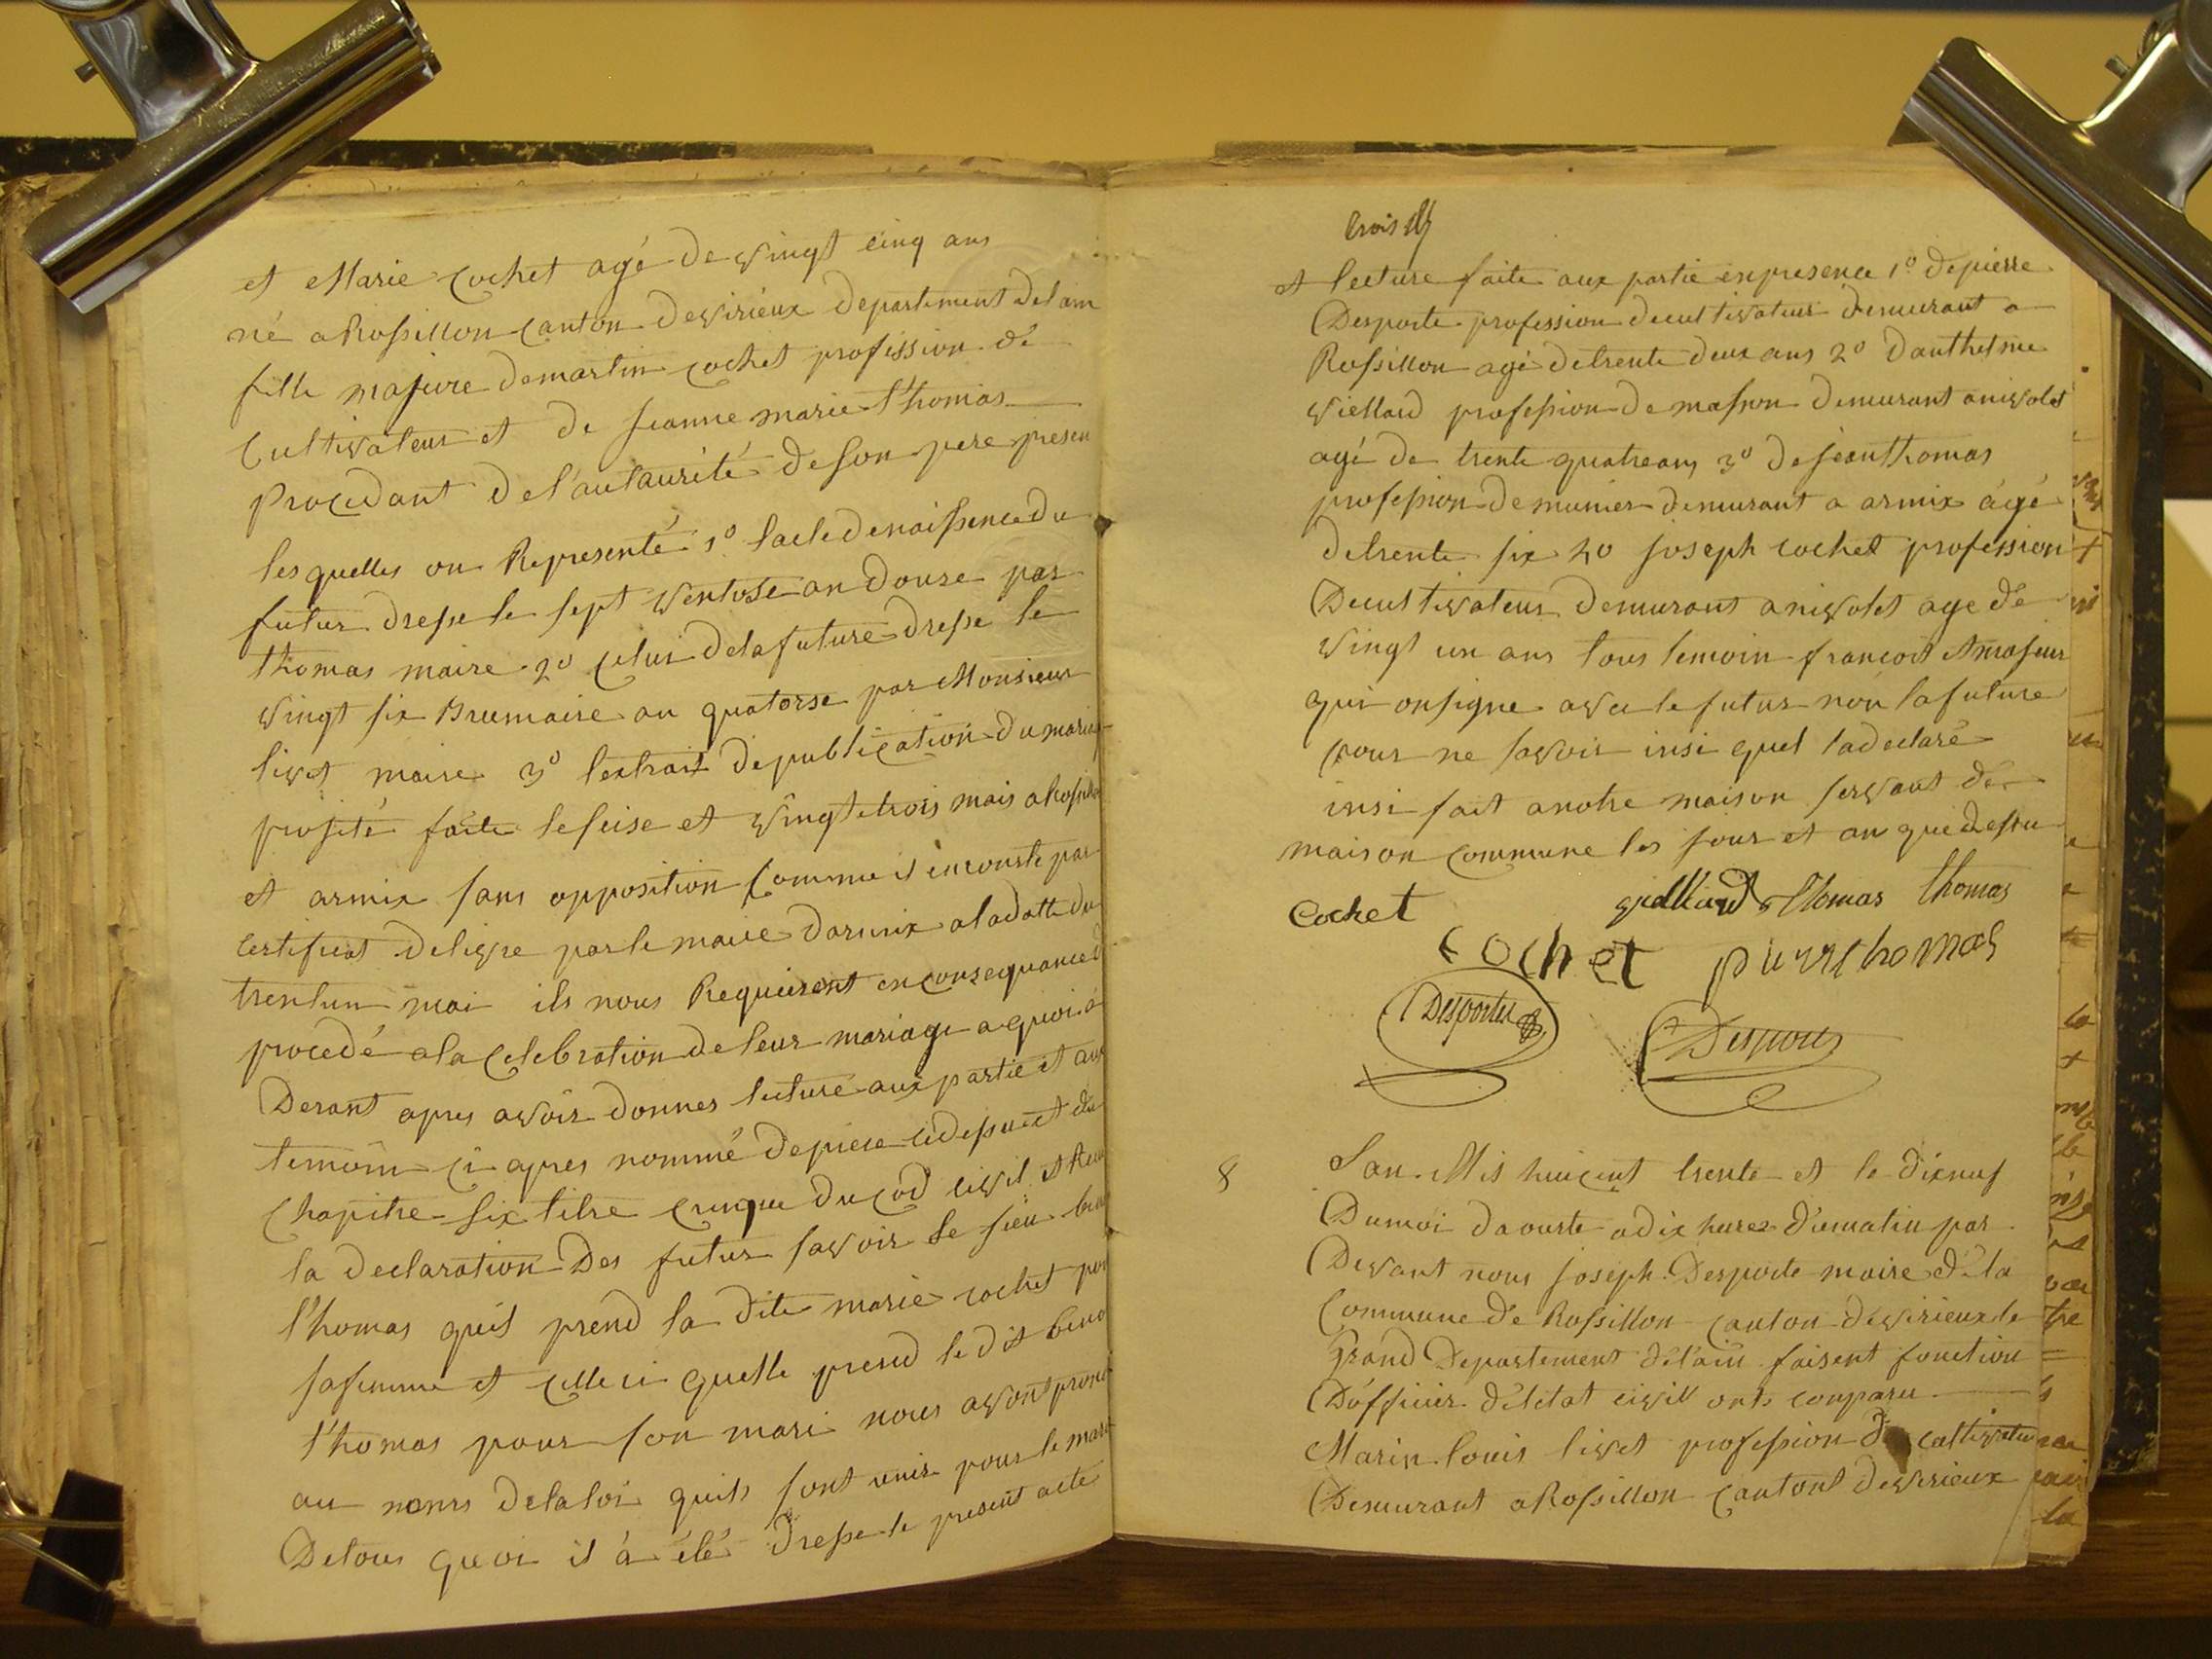 et Marie Cochet agé de vingt cinq ans
né a Rossillon canton de virieux departement de lain
fille majeure de martin cochet profession de
Cultivateur et de jeanne marie thomas
Procedant de l'autaurité de son pere presen
les quelles on Representé 1º lacte denaissence du
futur dresse le sept ventose an douse par
thomas maire 2º celui dela future dresse le
vingt six Brumaire an quatorse par Monsieur
livet maire 3º lextrait de publication du mariag
projeté faite le seise et vingt trois mais a Rossillo
et armix sans opposition comme il en conste par
certificat deligre par le maire darmix a ladatte du
trentun mai ils nous Requierent en consequance d
procedé a la celebration de leur mariage a quoi a
Derant apres avoir donner lecture aux partie et aux
temoin ci apres nommé depiece cidessu et du
Chapitre six titre cinque du cod civil et Reçu
la declaration Des futur savoir le sieu beno
thomas quil prend la dite marie cochet pou
sa femme et celle ci quelle prend le dit beno
thomas pour son mari nous avont prono
au noms dela loi quils sont unir pour le mari
De tous quoi il à été dresse le present acte
trois
et lecture faite aux partie en presence 1º de pierre
Desporte profession de cultivateur demurant a
Rossillon agé de trente deux ans 2º Danthelme
viellard profession de masson demurant a nivolet
agé de trente quatre ans 3º de jean thomas
profession de munier demurant a armix agé
de trente six 4º joseph cochet profession
De cultivateur demurant a nivolet age de
vingt un ans tous temoin françois et majeur
qui on signe avec le futur non la future
pour ne savoir insi quel la declaré
insi fait a notre maison servant de
maison commune les jour et an que dessu
Cochet vielliard Thomas thomas
cochet pierrthomas
Desportes Desporte
8
Lan Mil huicent trente et le dixneuf
Du moi daouste a dix hures du matin par
Devant nous joseph Desporte maire de la
Commune de Rossillon canton de virieux le
Grand Departement de lain faisent fonction
D'officier de letat civill onts conparu
Marin louis livet profession de cultivateu
Demurant a Rossillon canton de virieux